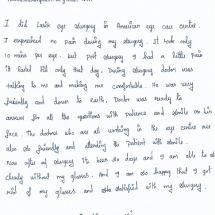 I did Lasik eye surgery in American eye care centre.
I experienced no pain during my surgery. It took only
10 mins per eye. but post surgery I had a little pain
It lasted till only that day, During surgery doctor was
talking to me and making me comfortable. He was very
friendly and down to earth. Doctor was ready to
answer for all the questions with patience and smile on his
face. The doctors who are all working in the eye centre are
also so friendly and attending the patient with smile.
Now after of surgery its been 20 days and I am able to see
clearly without my glasses. And I am so happy that I got
rid of my glasses and satisfied with my surgery.